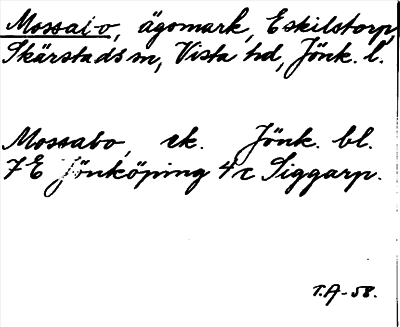 Mossabo, ägomark, Eskilstorp,
Skärstads sn, Vista hd, Jönk. l.
Mossabo, ek. Jönk. bl.
7E Jönköping 4c Siggarp.
T.A-58.